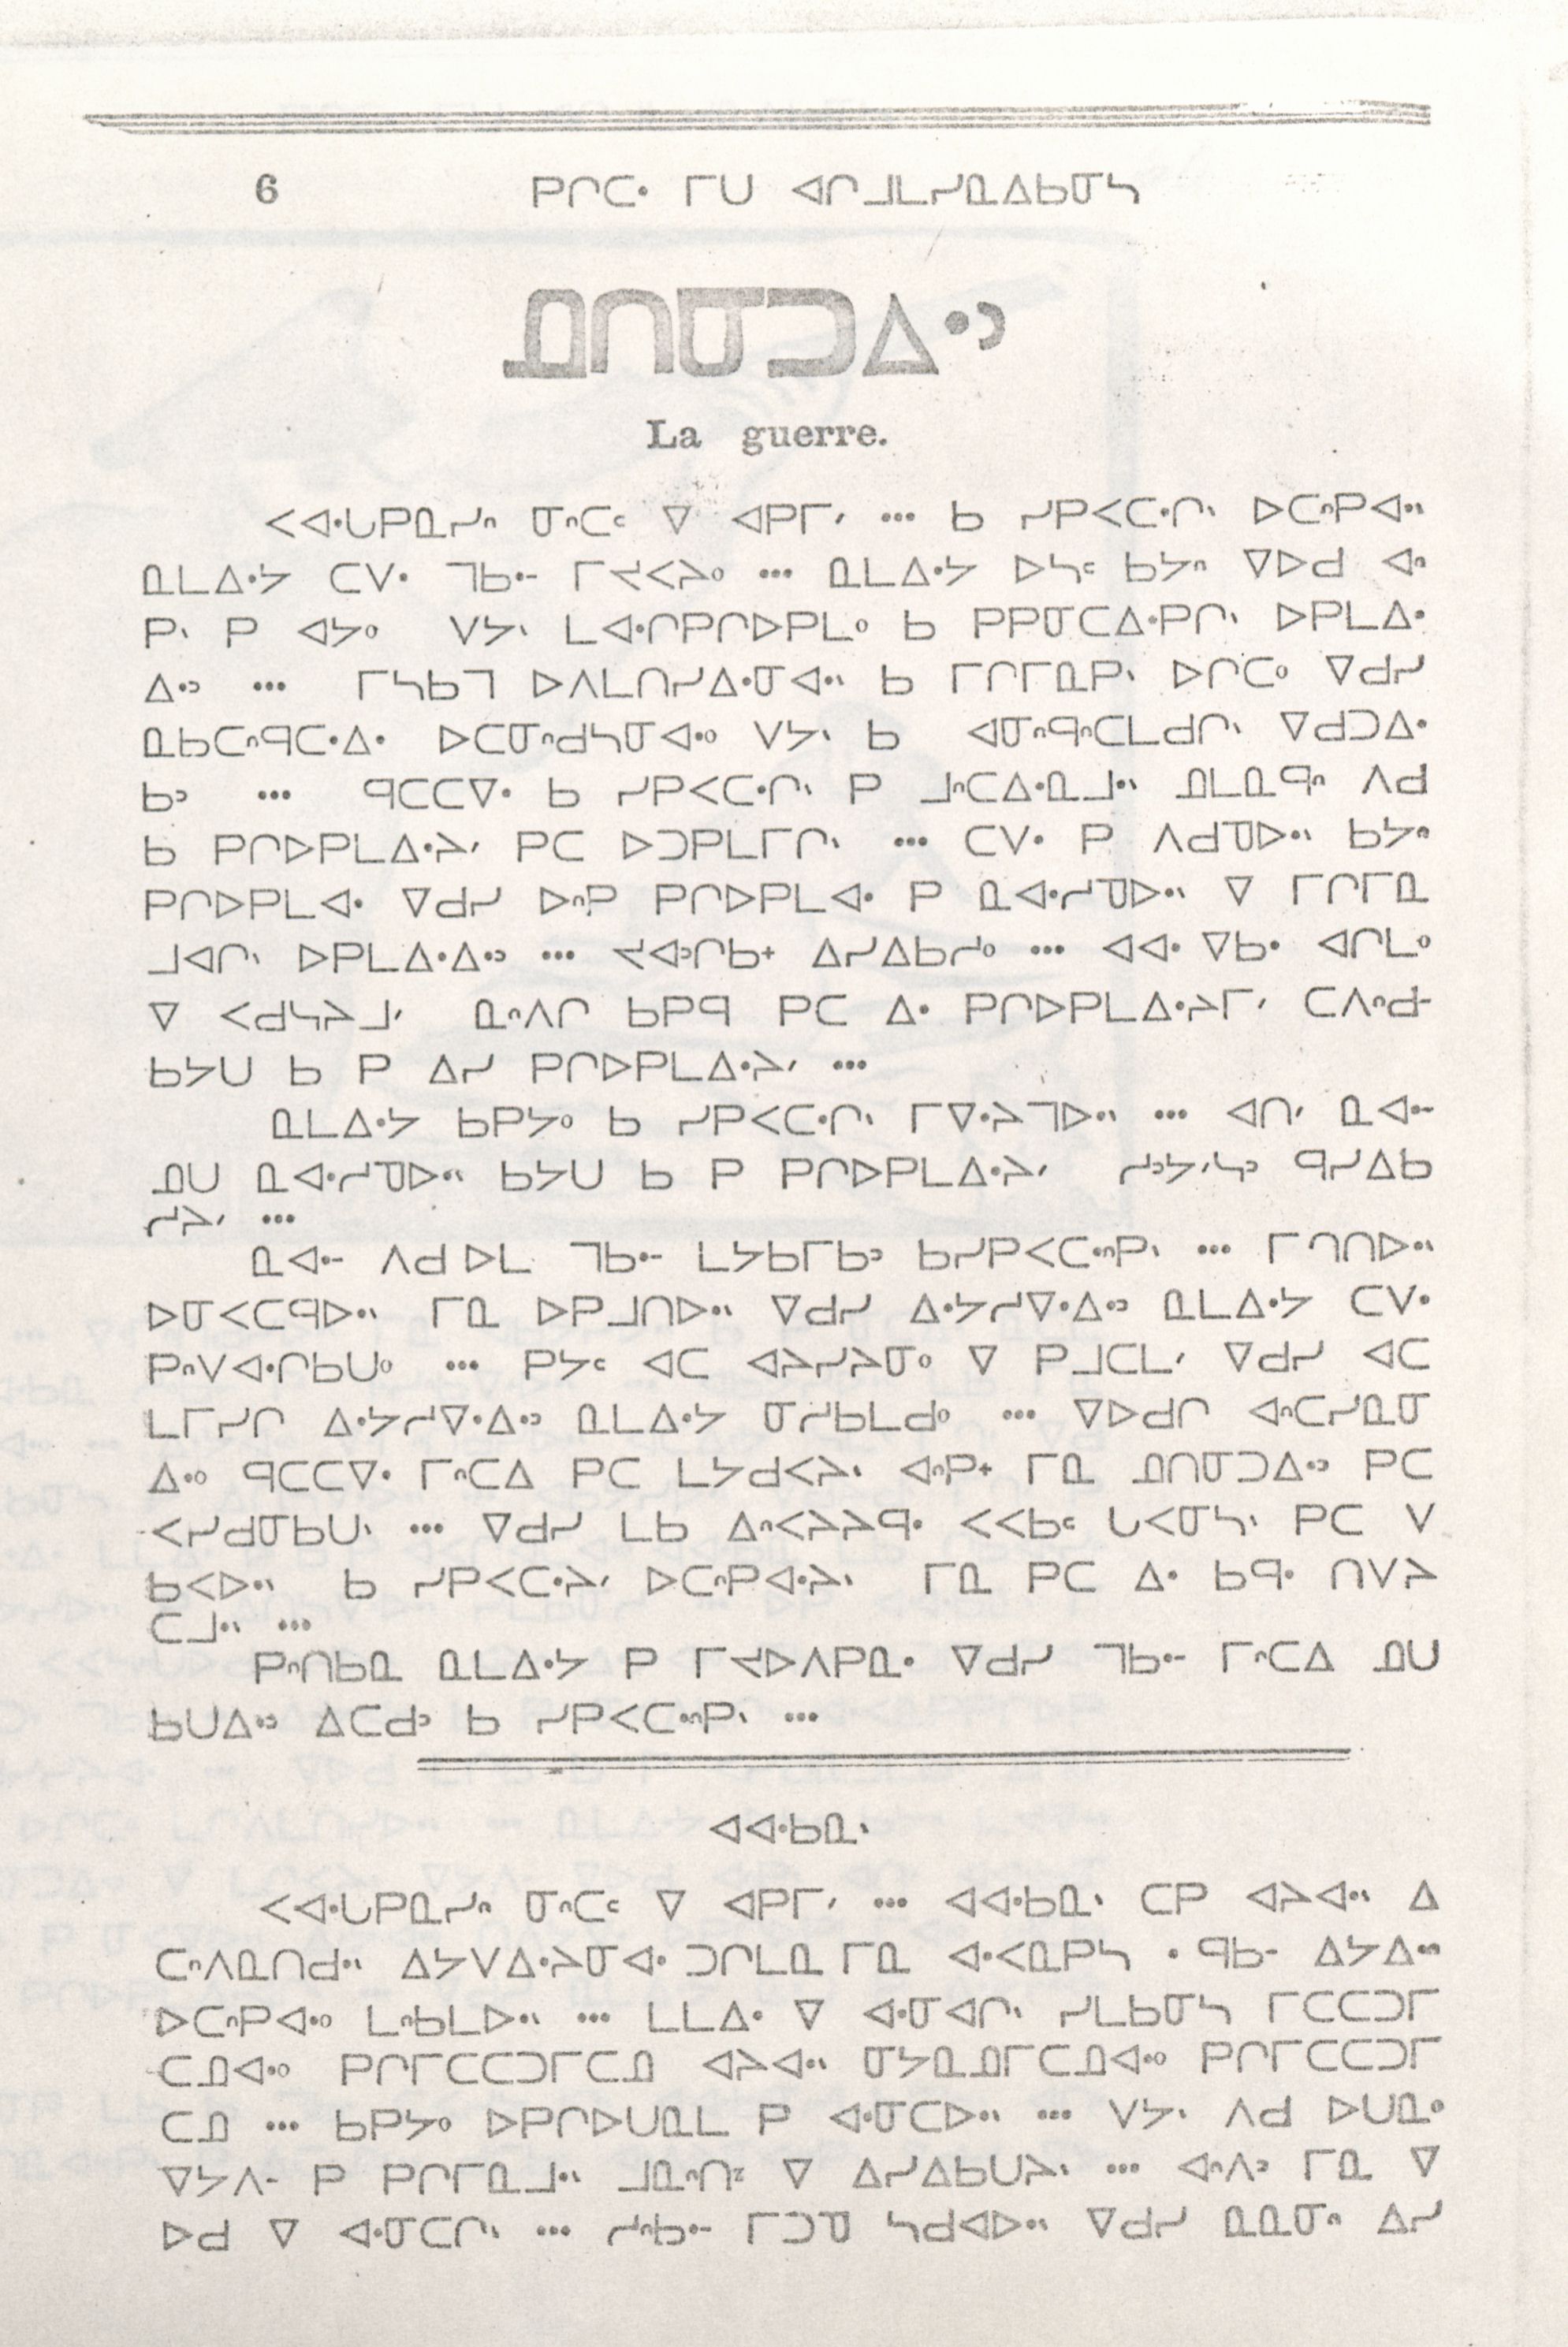 6 ᑭᒋᑕᐧ ᒥᑌ ᐊᒋᒧᒪᓯᓇᐃᑲᓂᓴ
ᓄᑎᓂᑐᐃᐧᐣ
La guerre.
ᐸᐊᐧᒐᑭᓇᓯᐢ ᓂᐢᑕᑦ ᐁ ᐊᑭᒥᐟ ... ᑲ ᓯᑭᐸᑕᐧᒋᐠ ᐅᑕᐢᑭᐊᐧᐠ
ᓇᒪᐃᐧᔭ ᑕᐯᐧ ᒣᑲᐧ- ᒥᔪᐸᔨᐤ ... ᓇᒪᐃᐧᔭ ᐅᓴᑦ ᑲᔭᐢ ᐁᐅᑯ ᐊᐧ
ᑭᐠ ᑭ ᐊᔭᐤ ᐯᔭᐠ ᒪᐊᐧᒋᑭᒋᐅᑭᒪᐤ ᑲ ᑭᑭᓂᑕᐃᐧᑭᒋᐠ ᐅᑭᒪᐃᐧ
ᐃᐧᐣ ... ᒥᓴᑲᒣ ᐅᐱᒪᑎᓯᐃᐧᓂᐊᐧᐠ ᑲ ᒥᒋᒥᓇᑭᐠ ᐅᒋᑕᐤ ᐁᑯᓯ
ᓇᑲᑕᐢᑫᑕᐧᐃᐧ ᐅᑕᓂᐢᑯᓴᓂᐊᐧᐤ ᐯᔭᐠ ᑲ ᐊᓂᐢᑫᐢᑕᒪᑯᒋᐠ ᐁᑯᑐᐃᐧ
ᑲᐣ ... ᑫᑕᑕᐁᐧ ᑲ ᓯᑭᐸᑕᐧᒋᐠ ᑭ ᒧᐢᑕᐃᐧᓇᒧᐧᐠ ᓄᒪᓇᑫᐢ ᐱᑯ
ᑲ ᑭᒋᐅᑭᒪᐃᐧᔨᐟ ᑭᑕ ᐅᑐᑭᒪᒥᒋᐠ ... ᑕᐯᐧ ᑭ ᐱᑯᓀᐅᐧᐠ ᑲᔭᐢ
ᑭᒋᐅᑭᒪᐊᐧ ᐁᑯᓯ ᐅᐢᑭ ᑭᒋᐅᑭᒪᐊᐧ ᑭ ᓇᐊᐧᓯᓀᐅᐧᐠ ᐁ ᒥᒋᒥᓇ
ᒧᐊᒋᐠ ᐅᑭᒪᐃᐧᐃᐧᐣ ... ᔪᐊᐣᒋᑲ+ ᐃᓯᐃᑲᓱᐤ ... ᐊᐊᐧ ᐁᑲᐧ ᐊᒋᒪᐤ
ᐁ ᐸᑯᓭᔨᒧᐟ ᓇᐢᐱᒋ ᑲᑭᑫ ᑭᑕ ᐃᐧ ᑭᒋᐅᑭᒪᐃᐧᔨᒥᐟ ᑕᐱᐢᑯ-
ᑲᔭᑌ ᑲ ᑭ ᐃᓯ ᑭᒋᐅᑭᒪᐃᐧᔨᐟ ...
ᓇᒪᐃᐧᔭ ᑲᑭᔭᐤ ᑲ ᓯᑭᐸᑕᐧᒋᐠ ᒥᐁᐧᔨᒣᐅᐧᐠ ... ᐊᑎᐟ ᓇᐊᐧ-
ᓄᑌ ᓇᐊᐧᓯᓀᐅᐧᐠ ᑲᔭᑌ ᑲ ᑭ ᑭᒋᐅᑭᒪᐃᐧᔨᐟ ᓱᐣᔭᐟᓴᐣ ᑫᓯᐃᑲ
ᓱᔨᐟ ...
ᓇᐊᐧ- ᐱᑯ ᐅᒪ ᒣᑲᐧ- ᒪᔭᑲᒥᑲᐣ ᑲᓯᑭᐸᑕᐧᐢᑭᐠ ... ᒥᒉᑎᐅᐧᐠ
ᐅᓂᐸᑕᑫᐅᐧᐠ ᒥᓇ ᐅᑭᒧᑎᐅᐧᐠ ᐁᑯᓯ ᐃᐧᔭᓱᐁᐧᐃᐧᐣ ᓇᒪᐃᐧᔭ ᑕᐯᐧ
ᑭᐢᐯᐊᐧᒋᑲᑌᐤ ... ᑭᔭᑦ ᐊᑕ ᐊᔨᓯᔨᓂᐤ ᐁ ᑭᒧᑕᒪᐟ ᐁᑯᓯ ᐊᑕ
ᒪᒥᓯᒋ ᐃᐧᔭᓱᐁᐧᐃᐧᐣ ᓇᒪᐃᐧᔭ ᓂᓱᑲᒪᑯᐤ ... ᐁᐅᑯᒋ ᐊᐢᑕᓯᓇᓂ
ᐃᐧᐤ ᑫᑕᑕᐁᐧ ᒥᐢᑕᐃ ᑭᑕ ᒪᔭᑯᐸᔨᐠ ᐊᐢᑭ+ ᒥᓇ ᓄᑎᓂᑐᐃᐧᐣ ᑭᑕ
ᐸᓯᑯᓂᑲᑌᐠ ... ᐁᑯᓯ ᒪᑲ ᐃᐢᐸᔨᔨᑫᐧ ᐸᐸᑲᑦ ᒐᐸᓂᓴᐠ ᑭᑕ ᐯ
ᑲᐸᐅᐧᐠ ᑲ ᓯᑭᐸᑕᐧᔨᐟ ᐅᑕᐢᑭᐊᐧᔨᐠ ᒥᓇ ᑭᑕ ᐃᐧ ᑲᑫᐧ ᑎᐯᔨ
ᑕᒧᐧᐠ ...
ᑭᐢᑎᑲᓇ ᓇᒪᐃᐧᔭ ᑭ ᒥᔪᐅᐱᑭᓇᐧ ᐁᑯᓯ ᒣᑲᐧ- ᒥᐢᑕᐃ ᓄᑌ
ᑲᑌᐃᐧᐣ ᐃᑕᑯᐣ ᑲ ᓯᑭᐸᑕᐧᐢᑭᐠ ...
ᐊᐊᐧᑲᓇᐠ
ᐸᐊᐧᒐᑭᓇᓯᐢ ᓂᐢᑕᑦ ᐁ ᐊᑭᒥᐟ ... ᐊᐊᐧᑲᓇᐠ ᑕᑭ ᐊᔨᐊᐧᐠ ᐃ
ᑕᐢᐱᓇᑎᑯᐧᐠ ᐃᔭᐯᐃᐧᔨᓂᐊᐧ ᑐᒋᒪᓇ ᒥᓇ ᐊᐧᐸᓇᑭᓴ · ᑫᑲ- ᐃᔭᐃᐧᐢ
ᐅᑕᐢᑭᐊᐧᐤ ᒪᐢᑲᒪᐅᐧᐠ ... ᒪᒪᐃᐧ ᐁ ᐊᐧᓂᐊᒋᐠ ᓯᒪᑲᓂᓴ ᒥᑕᑕᑐᒥ
ᑕᓄᐊᐧᐤ ᑭᒋᒥᑕᑕᑐᒥᑕᓄ ᐊᔨᐊᐧᐠ ᓂᔭᓇᓄᒥᑕᓄᐊᐧᐤ ᑭᒋᒥᑕᑕᑐᒥ
ᑕᓄ ... ᑲᑭᔭᐤ ᐅᑭᒋᐅᑌᓇᒪ ᑭ ᐊᐧᓂᑕᐅᐧᐠ ... ᐯᔭᐠ ᐱᑯ ᐅᑌᓇᐤ
ᐁᔭᐱ- ᑭ ᑭᒋᒥᓇᒧᐧᐠ ᒧᓇᐢᑎᕀ ᐁ ᐃᓯᐃᑲᑌᔨᐠ ... ᐊᐢᐱᐣ ᒥᓇ ᐁ
ᐅᑯ ᐁ ᐊᐧᓂᑕᒋᐠ ... ᓱᐢᑲᐧ- ᒥᑐᓀ ᓴᑯᐊᐅᐧᐠ ᐁᑯᓯ ᓇᓇᓂᐢ ᐃᓯ